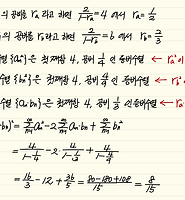 의 공비를 r_a라고 하면 \frac{2}{1-r_a}=4 에서 r_a=\frac{1}{2}
의 공비를 r_b라고 하면 \frac{2}{1-r_b}=6 에서 r_b=\frac{2}{3}
열 {a_n²}은 첫째항 4, 공비 \frac{1}{4} 인 등비수열 ← r_a²
{b_n²}은 첫째항 4, 공비 \frac{4}{9} 인 등비수열 ← r_b²
열 {a_n b_n}은 첫째항 4, 공비 \frac{1}{3} 인 등비수열 ←
b_n)² = \sum_{n=1}^{∞} a_n² - 2\sum_{n=1}^{∞} a_n b_n + \sum_{n=1}^{∞} b_n²
= \frac{4}{1-\frac{1}{4}} - 2·\frac{4}{1-\frac{1}{3}} + \frac{4}{1-\frac{4}{9}}
= \frac{16}{3} - 12 + \frac{36}{5} = \frac{80-180+108}{15} = \frac{8}{15}